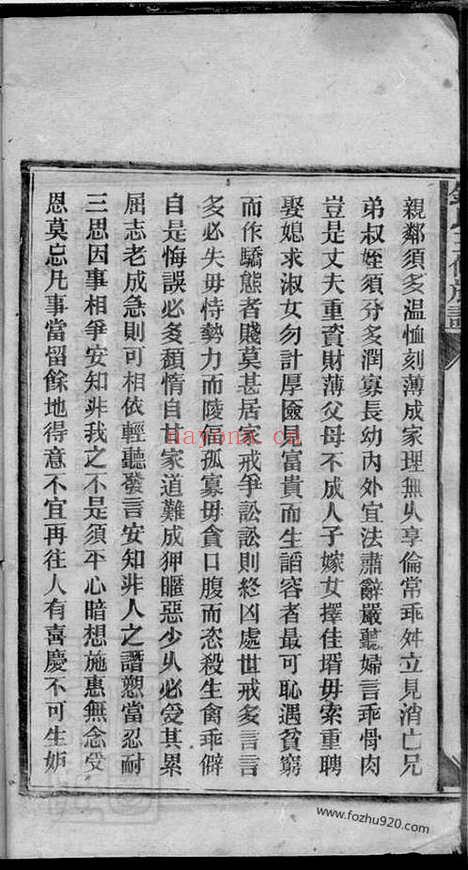 親鄰須多溫恤刻薄成家理無久享倫常乖舛立見消亡兄
弟叔姪須分多潤寡長幼內外宜法肅辭嚴聽婦言乖骨肉
豈是丈夫重資財薄父母不成人子嫁女擇佳壻毋索重聘
娶媳求淑女勿計厚奩見富貴而生諂容者最可恥遇貧窮
而作驕態者賤莫甚居家戒爭訟訟則終凶處世戒多言言
多必失毋恃勢力而陵逼孤寡毋貪口腹而恣殺生禽乖僻
自是悔誤必多頹惰自甘家道難成狎暱惡少久必受其累
屈志老成急則可相依輕聽發言安知非人之譖愬當忍耐
三思因事相爭安知非我之不是須平心暗想施惠無念受
恩莫忘凡事當留餘地得意不宜再往人有喜慶不可生妬
nayona.cn
www.fozhu920.com